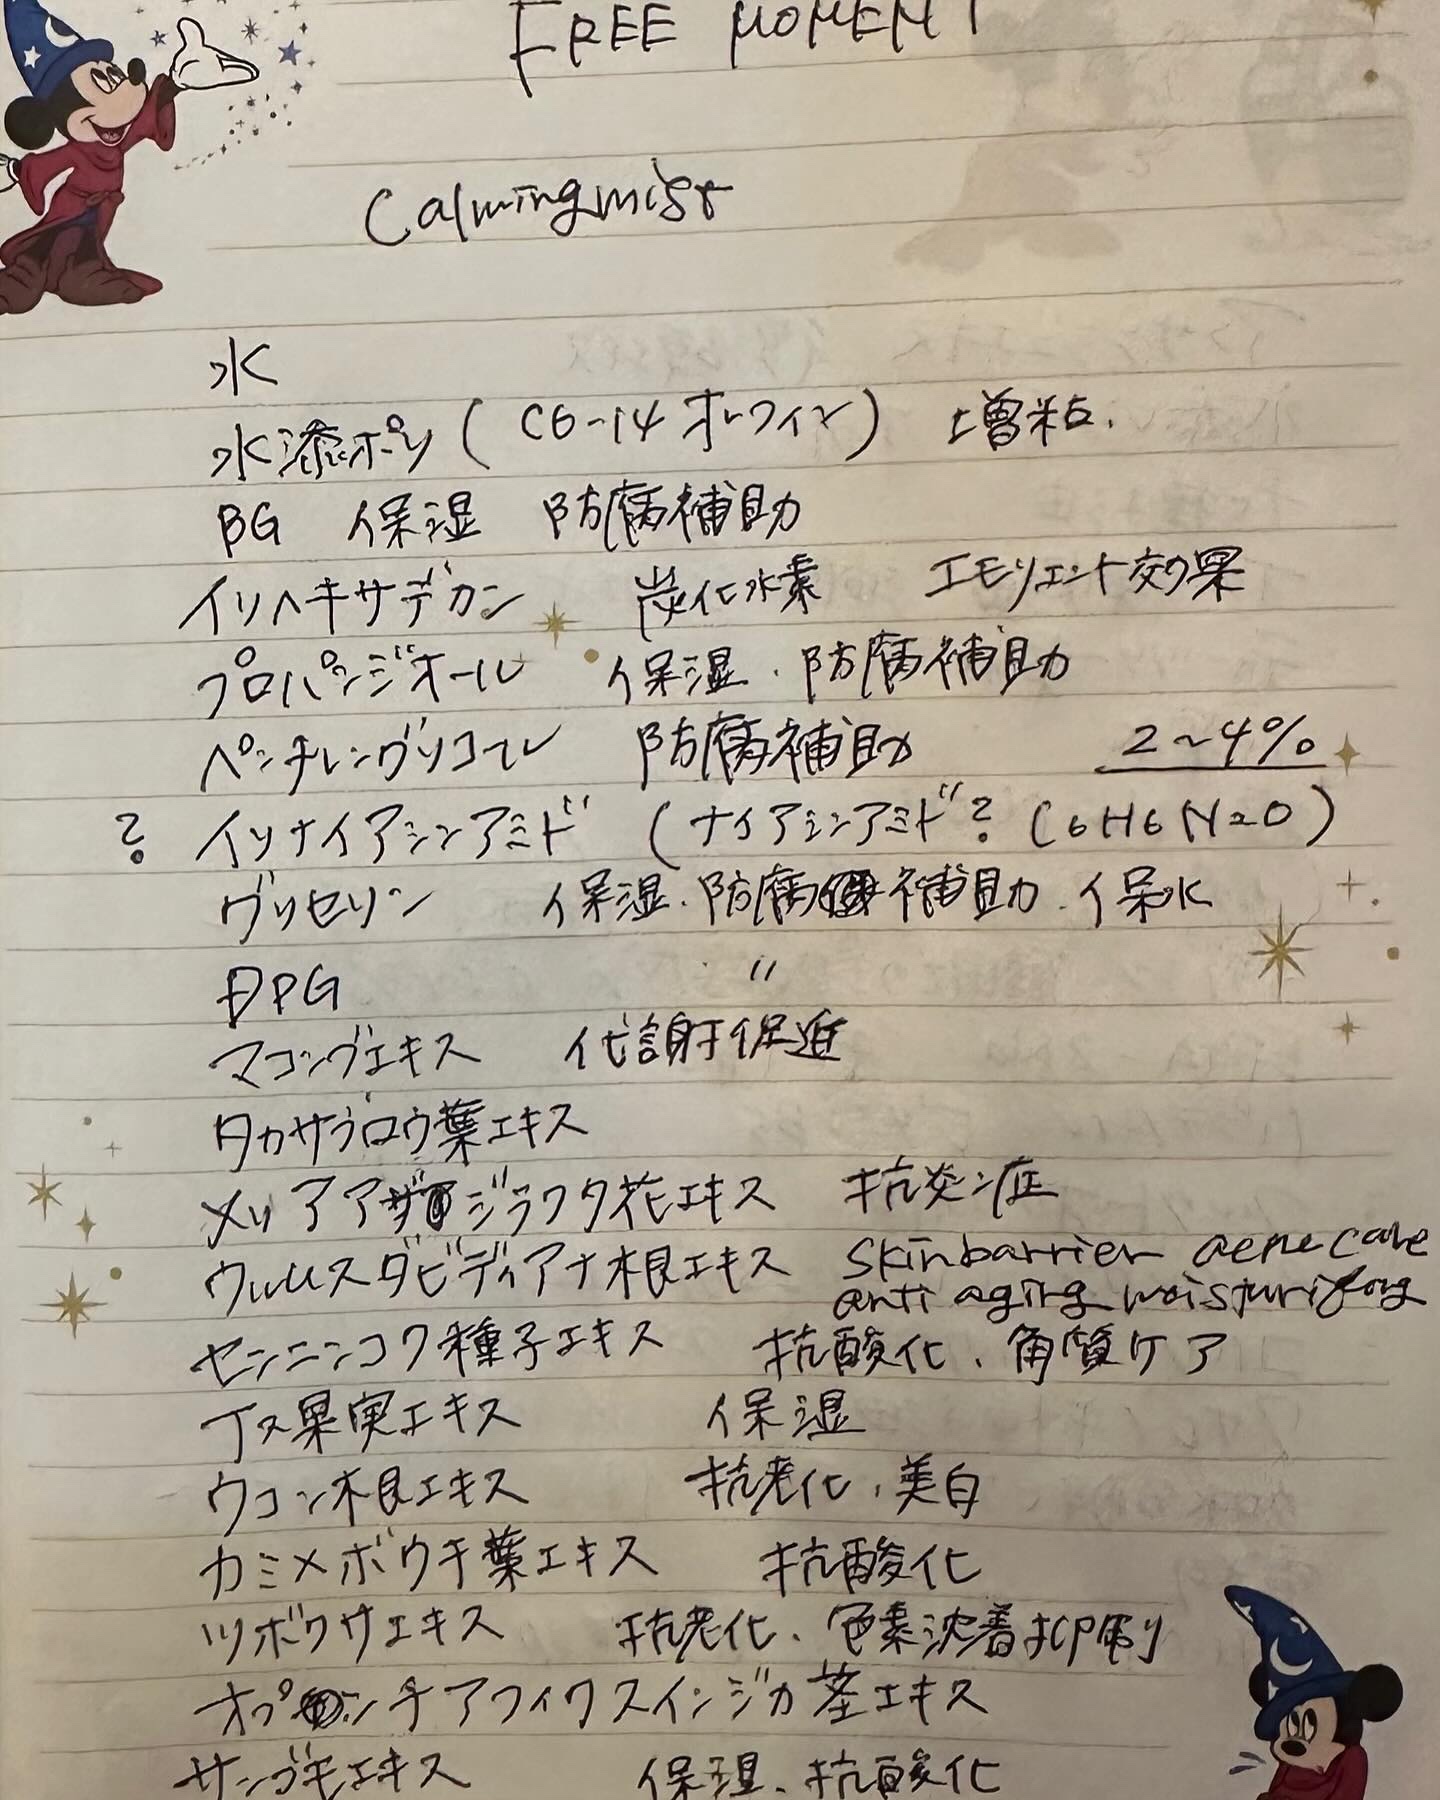 FREE MOMENT
Calmingmist
水
水添ポリ(C6-14オレフィン) 増粘.
BG 保湿 防腐補助
イソヘキサデカン 炭化水素 エモリエント効果
プロパンジオール 保湿.防腐補助
ペンチレングリコール 防腐補助 2~4%
? イソナイアシンアミド (ナイアシンアミド? C6H6N2O)
グリセリン 保湿.防腐補助.保水
DPG 〃
マコンブエキス 代謝促進
タカサブロウ葉エキス
メリアアザジラクタ花エキス 抗炎症
ウルムスダビディアナ根エキス skinbarrier acne care
anti aging moisturifong
センニンコク種子エキス 抗酸化、角質ケア
ナス果実エキス 保湿
ウコン根エキス 抗老化、美白
カミメボウキ葉エキス 抗酸化
ツボクサエキス 抗老化、色素沈着抑制
オプンチアフィクスインジカ茎エキス
サンゴモエキス 保湿、抗酸化